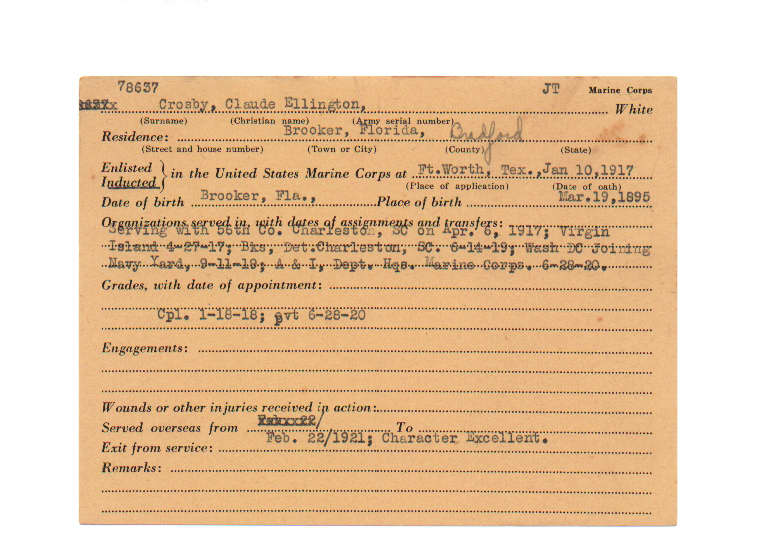 78637 JT Marine Corps
Crosby, Claude Ellington, White
(Surname) (Christian name) (Army serial number)
Residence: Brooker, Florida, Bradford
(Street and house number) (Town or City) (County) (State)
Enlisted
Inducted } in the United States Marine Corps at Ft.Worth, Tex., Jan 10,1917
(Place of application) (Date of oath)
Date of birth Brooker, Fla., Place of birth Mar.19,1895
Organizations served in, with dates of assignments and transfers:
Serving with 55th Co. Charleston, SC on Apr. 6, 1917; Virgin
Island 4-27-17; Bks, Det.Charleston, SC. 6-14-19; Wash DC Joining
Navy Yard, 9-11-19; A & I, Dept. Hqs. Marine Corps. 6-28-20.
Grades, with date of appointment:
Cpl. 1-18-18; pvt 6-28-20
Engagements:
Wounds or other injuries received in action:
Served overseas from To
Feb. 22/1921; Character Excellent.
Exit from service:
Remarks: